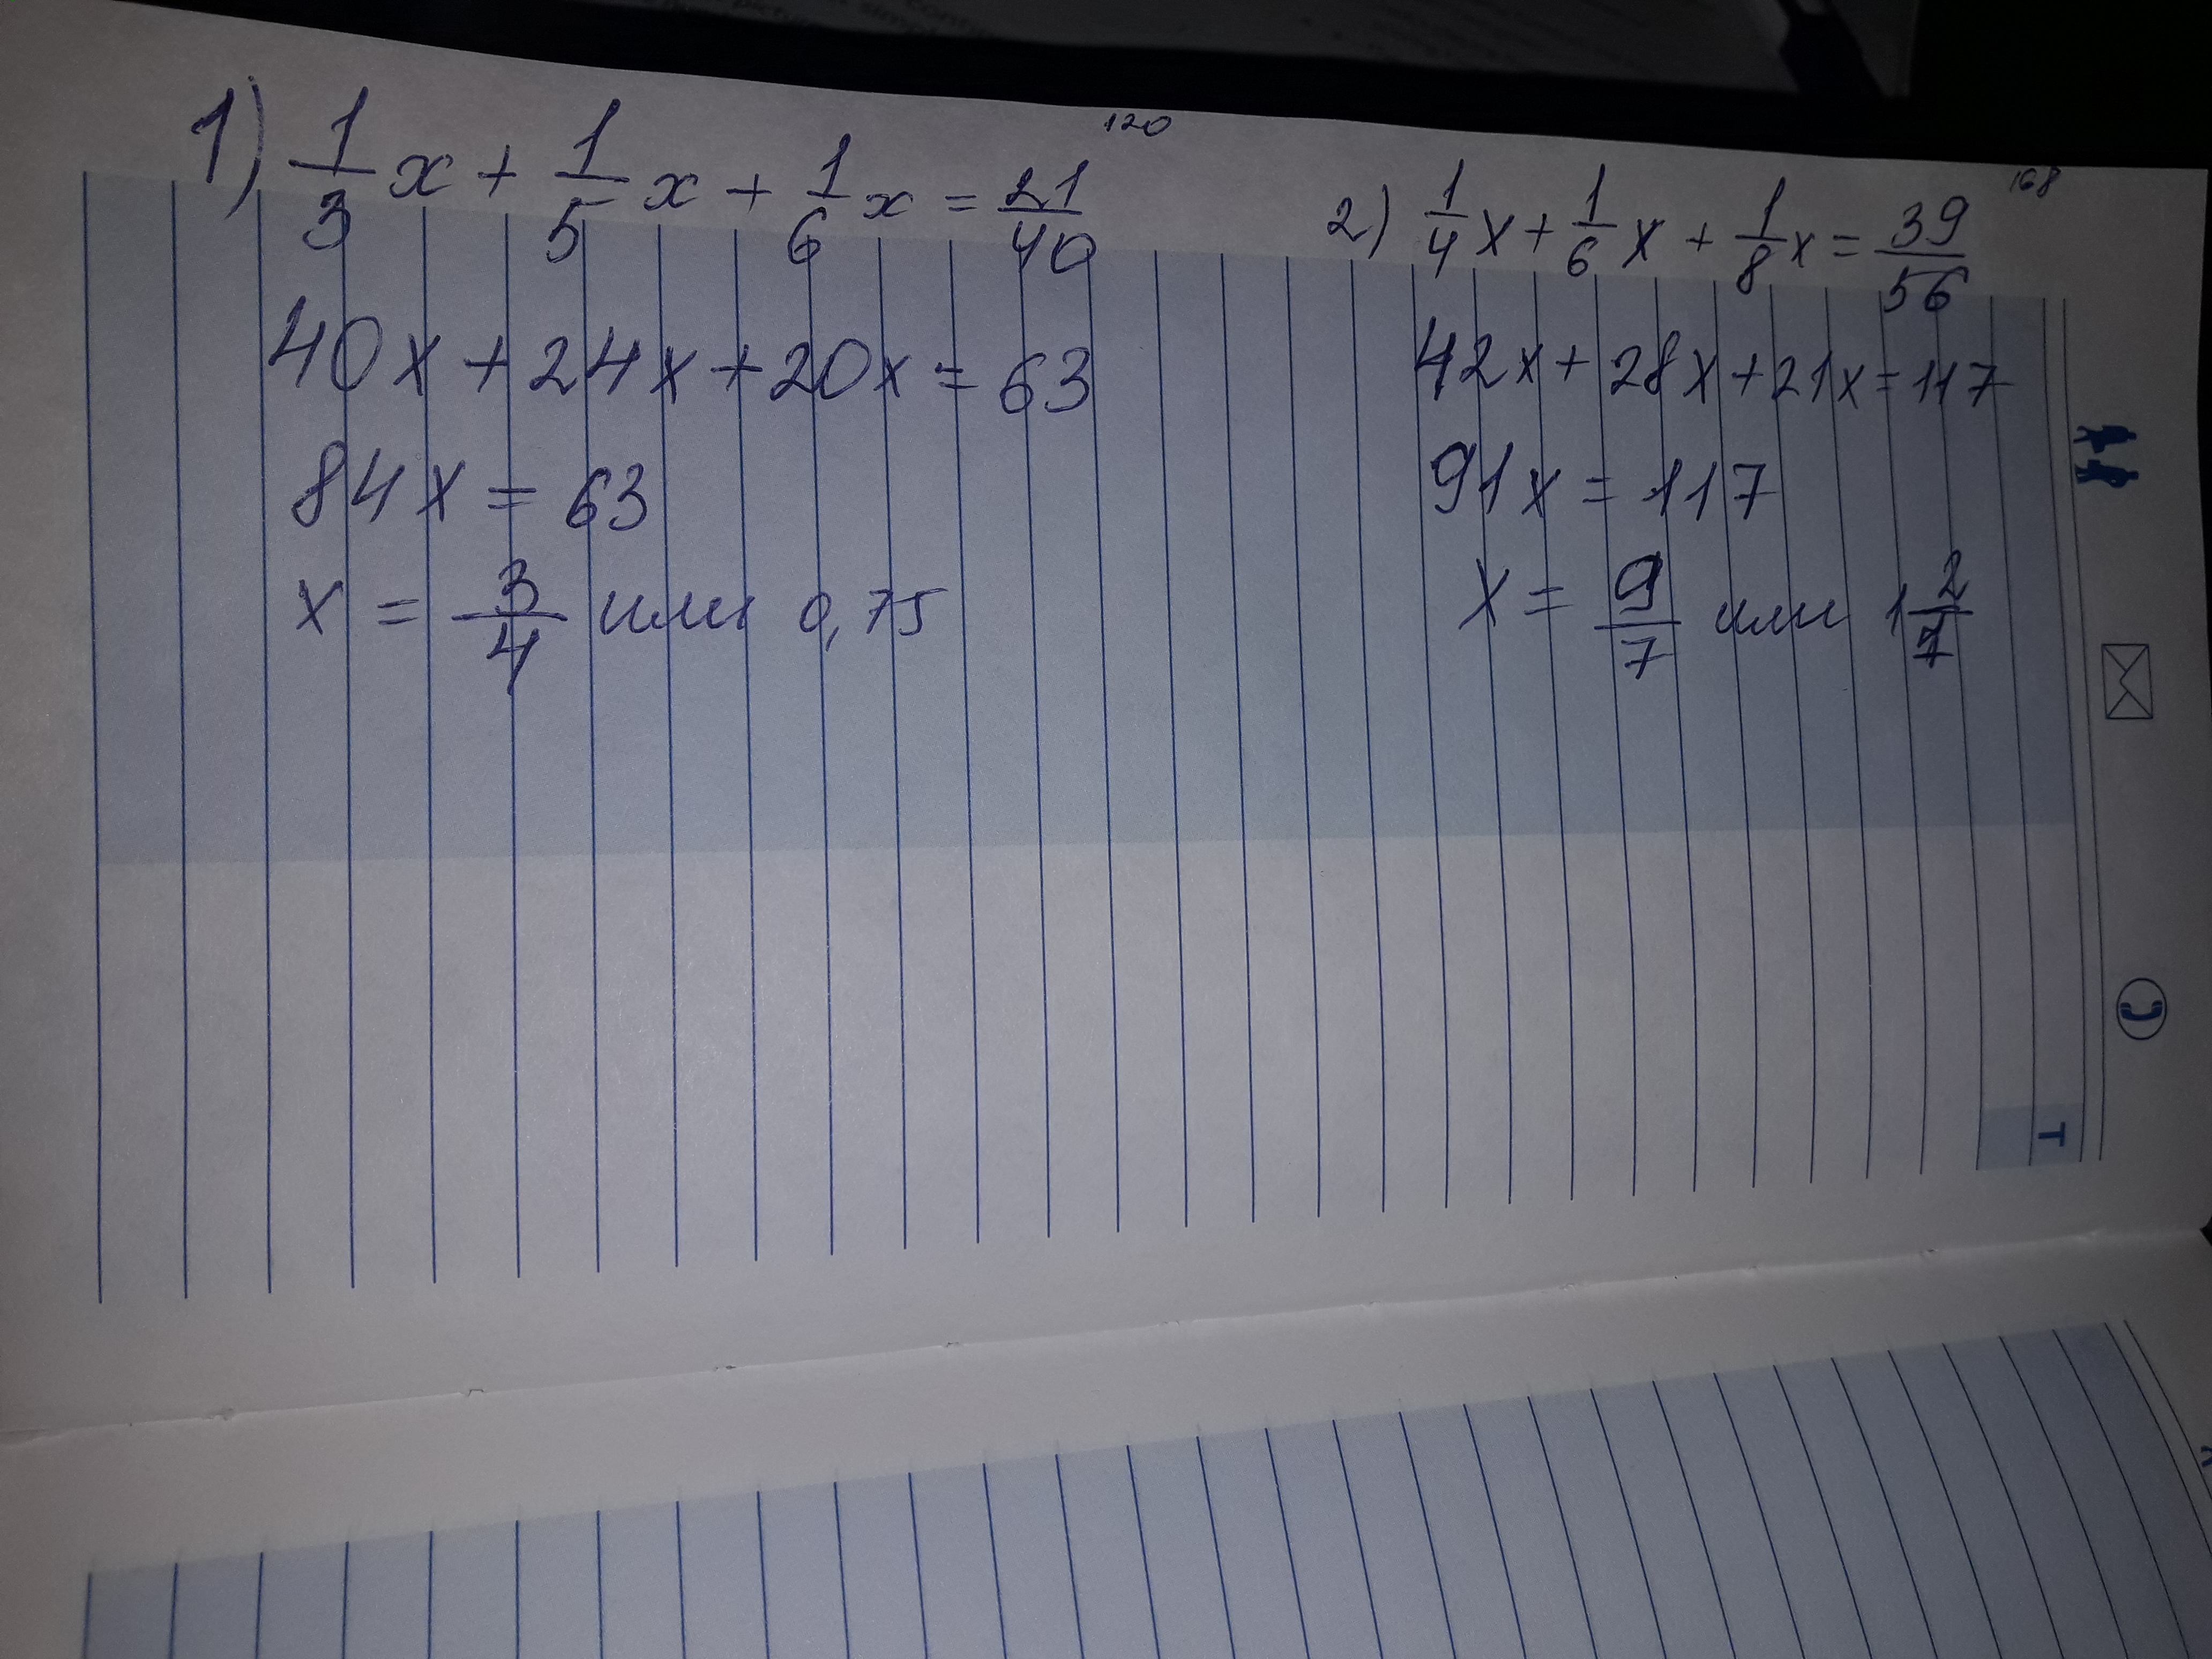 1) 1/3 x + 1/5 x + 1/6 x = 21/40 120
40x + 24x + 20x = 63
84x = 63
x = 3/4 или 0,75
2) 1/4 x + 1/6 x + 1/8 x = 39/56 168
42x + 28x + 21x = 117
91x = 117
x = 9/7 или 1 2/7
T